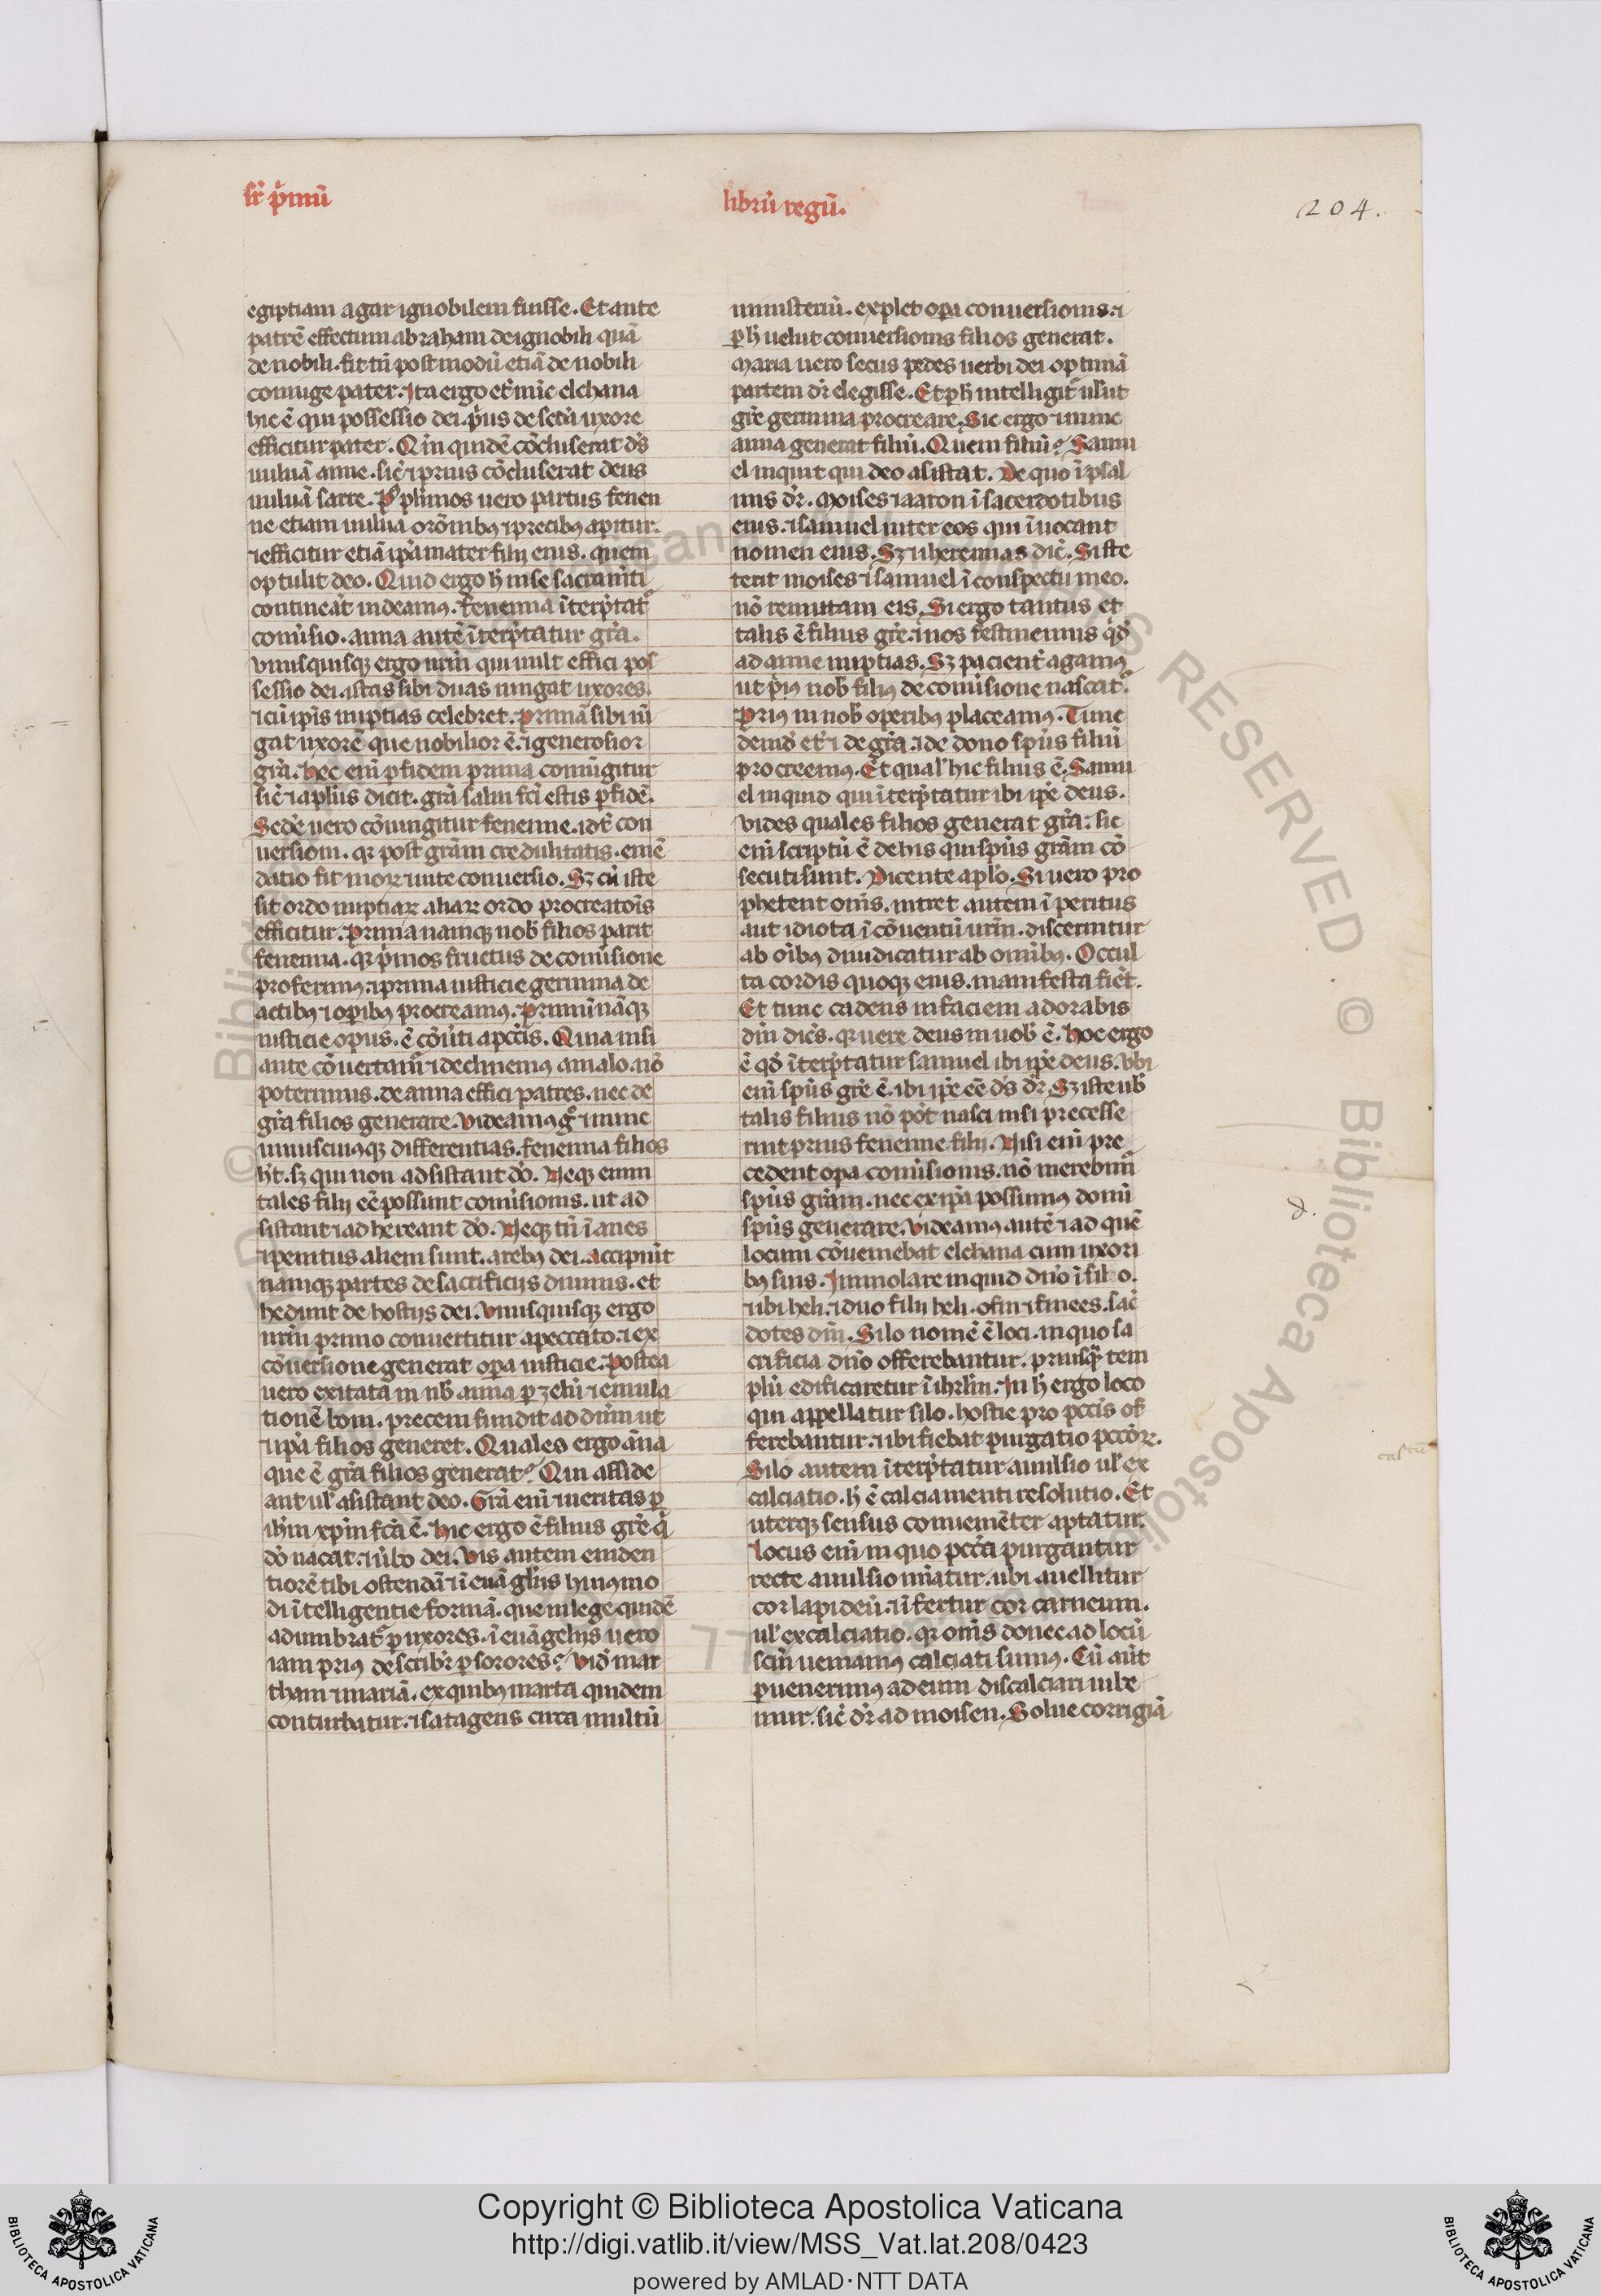 sr̄ p̄mū
librū regū.
204.
egiptiam agar ignobilem fuisse. Et ante
patrē effectum abraham de ignobili quā
de nobili. fit tn̄ post modū etiā de nobili
coniuge pater. Ita ergo et nūc elchana
hic ē qui possessio dei. pus de scd̄a uxore
efficitur pater. Qm̄ quidē cōcluserat dn̄s
uuluā anne. sic ⁊ prius cōcluserat deus
uuluā sarre. Post plimos uero partus fenen
ne etiam uulua orōnibꝯ ⁊ precibꝯ apitur.
⁊ efficitur etiā ip̄a mater filij eius. quem
optulit deo. Quid ergo h̄ in se sacram̄ti
contineat uideamꝯ. fenenna īterp̄tatr̄
conuˀsio. anna autē īterp̄tatur grā.
vnusquisqꝫ ergo nrm̄ qui uult effici pos
sessio dei. istas sibi duas iungat uxores.
⁊ cū ipis nuptias celebret. Primā sibi iū
gat uxorē que nobilior ē. ⁊ generosior
grā. hec eni p fidem prima coniūgitur
sic ⁊ apłus dicit. grā salui fc̄i estis p fidē.
Sede uero cōiungitur fenenne. id ē con
uersioni. qꝛ post grām credulitatis. emē
datio fit moꝝ uite conuersio. Sꝫ cū iste
sit ordo nuptiaꝝ. aliaꝝ ordo procreatois
efficitur. Prima namqꝫ nob̄ filios parit
fenenna. qꝛ p̄mos fructus de conuˀsione
proferimꝯ. ⁊ prima iusticie germina de
actibꝯ ⁊ opibꝯ procreamꝯ. Primū nāqꝫ
iusticie opus. ē cōuˀti a pcc̄is. Quia nisi
ante cōuertamr̄ ⁊ declinemꝯ a malo. nō
poterimus. de anna effici patres. nec de
grā filios generare. Videamꝯ gͦ ⁊ nunc
uniuscuiꝯqꝫ differentias. fenenna filios
ht̄. sꝫ qui non adsistant dō. Neqꝫ enim
tales filij eē possunt conuˀsionis. ut ad
sistant ⁊ adhereant dō. Neqꝫ tn̄ īanes
⁊ penitus alieni sunt. a rebꝯ dei. accipiūt
namqꝫ partes de sacrificijs diuinis. et
hedunt de hostijs dei. Vnusquisqꝫ ergo
nrm̄ primo conuertitur a peccato. ⁊ ex
cōuersione generat opa iusticie. Postea
uero exitata in nb̄ anna p zelū ⁊ emula
tionē boni. precem fundit ad dn̄m ut
⁊ ip̄a filios generet. Quales ergo āna
que ē grā filios generat? Qui asside
ant ul asistant deo. Grā eni ⁊ ueritas p
ihm̄ xpm̄ fc̄a ē. Hic ergo ē filius grē q
dō uacat. ⁊ uˀbo dei. Vis autem euiden
tiorē tibi ostendā ⁊ ī euāglijs huiꝯmo
di ītelligentie formā. que in lege quidē
adumbratr̄ p uxores. ī euāgelijs uero
iam prius describˀr p sorores? Vid mar
tham ⁊ mariā. ex quibꝯ marta quidem
conturbatur. ⁊ satagens circa multū
ministeriū. explet opa conuersionis. ⁊
p h̄ uelut conuersionis filios generat.
Maria uero secus pedes uerbi dei optimā
partem dr̄ elegisse. Et p h̄ intelligitr̄ uelut
grē germina procreare. Sic ergo ⁊ nunc
anna generat filiū. Quem filiū? Samu
el inquit qui deo asistat. De quo ī psal
mis dr̄. Moises ⁊ aaron ī sacerdotibus
eius. ⁊ samuel inter eos qui īuocant
nomen eius. Sꝫ ⁊ iheremias dic̄. Si ste
terit moises ⁊ samuel ī conspectu meo.
nō remittam eis. Si ergo tantus et
talis ē filius grē. ⁊ nos festinemus q̄d
ad anne nuptias. Sꝫ pacient agamꝯ
ut p̄iꝯ nob̄ filiꝯ de conuˀsione nascatr̄.
Priꝯ in nob̄ operibꝯ placeamꝯ. Tunc
deinde et ⁊ de grā. ⁊ de dono spūs filiū
procreemꝯ. Et qual hic filius ē. Samu
el inquid qui īterp̄tatur ibi ip̄e deus.
Vides quales filios generat grā: sic
eni scriptū ē de his qui spūs grām cō
secuti sunt. Dicente apło. Si uero pro
phetent om̄s. intret autem ī peritus
aut idiota ī cōuentū urm̄. discernitur
ab oibꝯ diiudicatur ab omibꝯ. Occul
ta cordis quoqꝫ eius. manifesta fiēt.
Et tunc cadens in faciem adorabis
dn̄m dicēs. qꝛ uere deus in uob̄ ē. Hoc ergo
ē qd̄ īterp̄tatur samuel ibi ip̄e deus. Vbi
eni spūs grē ē. ibi ip̄e eē ds̄ dr̄. Sꝫ iste ub̄
talis filius nō pōt nasci nisi precesse
rint prius fenenne filij. Nisi eni pre
cedent opa conuˀsionis. nō merebimr̄
spūs grām. nec ex ip̄a possumꝯ doni
spūs generare. Videamꝯ autē ⁊ ad quē
locum cōueniebat elchana cum uxori
bꝯ suis. Immolare inquid dn̄o ī silo.
⁊ ubi heli. ⁊ duo filij heli. ofni ⁊ finees. sac̄
dotes dn̄i. Silo nomē ē loci. in quo sa
crificia dn̄o offerebantur. priusq̄ tem
plū edificaretur ī ihrlm̄. In h̄ ergo loco
qui appellatur silo. hostie pro pcc̄is of
ferebantur. ⁊ ibi fiebat purgatio pccōꝝ.
Silo autem īterp̄tatur auulsio ul ex
calciatio. h̄ ē calciamenti resolutio. Et
uterqꝫ sensus conueniēter aptatur.
Locus eni in quo pcc̄a purgantur
recte auulsio nōiatur. ubi auellitur
cor lapideū. ⁊ īfertur cor carneum.
ul excalciatio. qꝛ om̄s donec ad locū
scm̄ ueniamꝯ calciati sumꝯ. Cū aūt
puenerimꝯ ad eum discalciari iube
mur. sic dr̄ ad moisen. Solue corrigiā
Copyright © Biblioteca Apostolica Vaticana
http://digi.vatlib.it/view/MSS_Vat.lat.208/0423
powered by AMLAD·NTT DATA
BIBLIOTECA APOSTOLICA VATICANA
BIBLIOTECA APOSTOLICA VATICANA